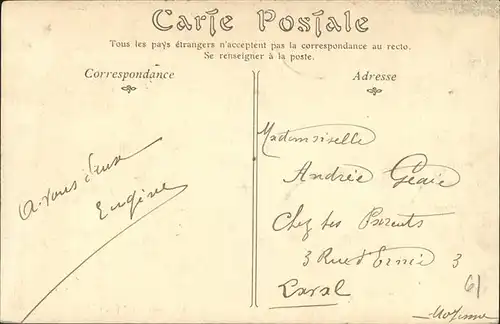 Carte Postale
Tous les pays étrangers n'acceptent pas la correspondance au recto.
Se renseigner à la poste.
Correspondance
Adresse
A vous deux
Eugène
Mademoiselle
Andrée
Chez ses Parents
3 Rue d'Ernée 3
Laval
61
Mayenne